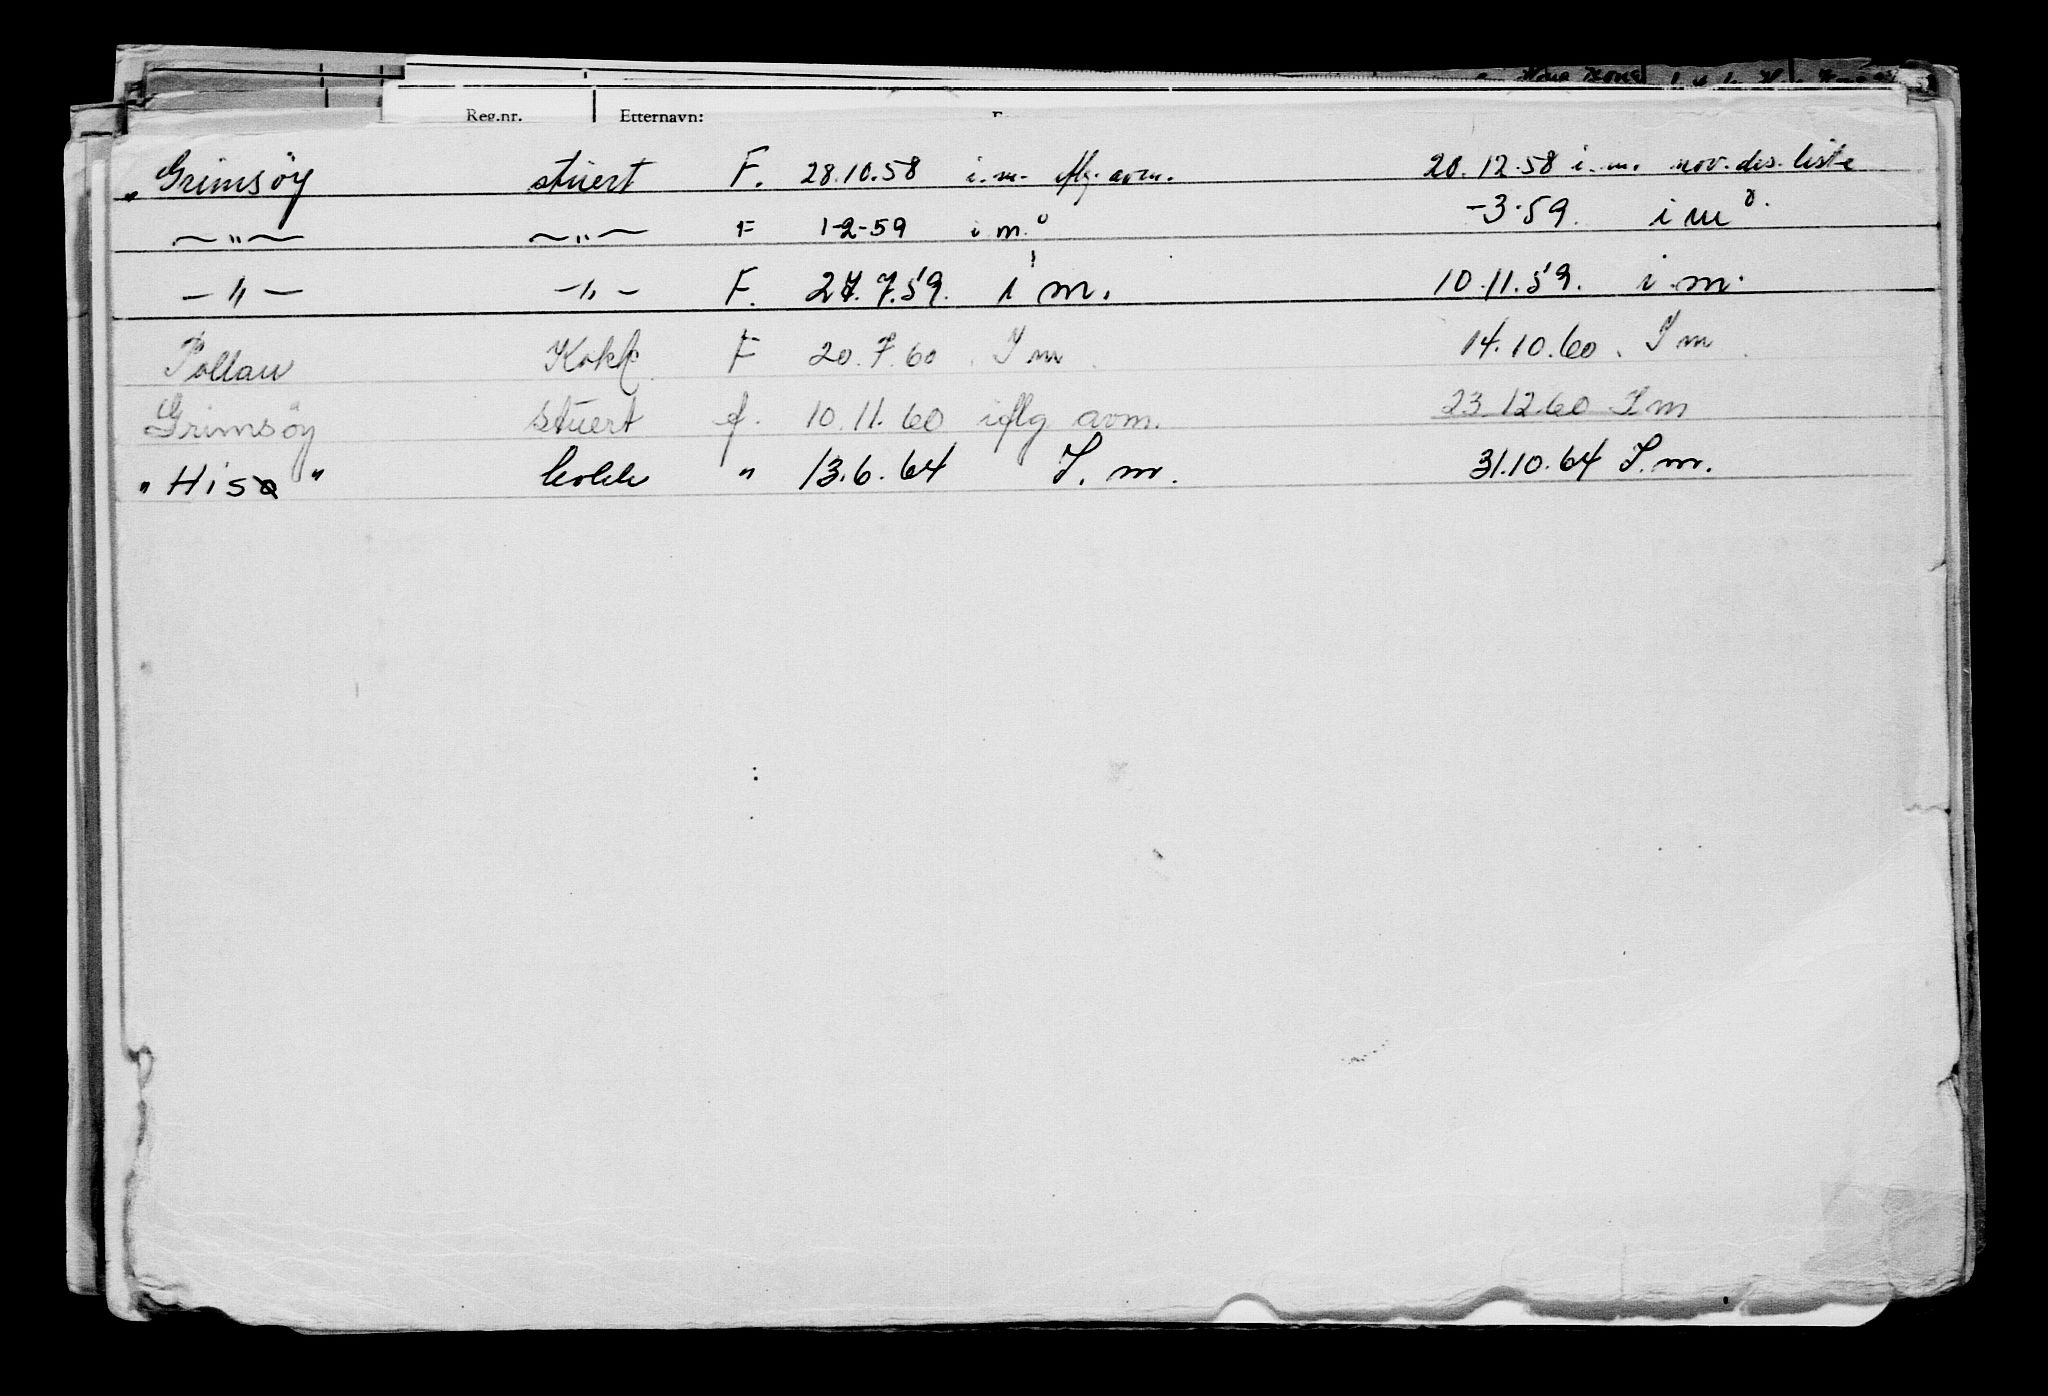 Reg.nr. Etternavn:
"Grimsöy stuert F. 28.10.58 i.m. iflg. avm. 20.12.58 i.m. nov. des. liste
—"— —"— F 1-2-59 i m. -3.59. i m
—"— —"— F. 27.7.59. i m. 10.11.59. i.m.
Pollau Kokk F 20.7.60. I m. 14.10.60. I m
Grimsöy stuert f. 10.11.60 iflg avm. 23.12.60 I m
"Hisø" kokk " 13.6.64 I. m. 31.10.64 I. m.